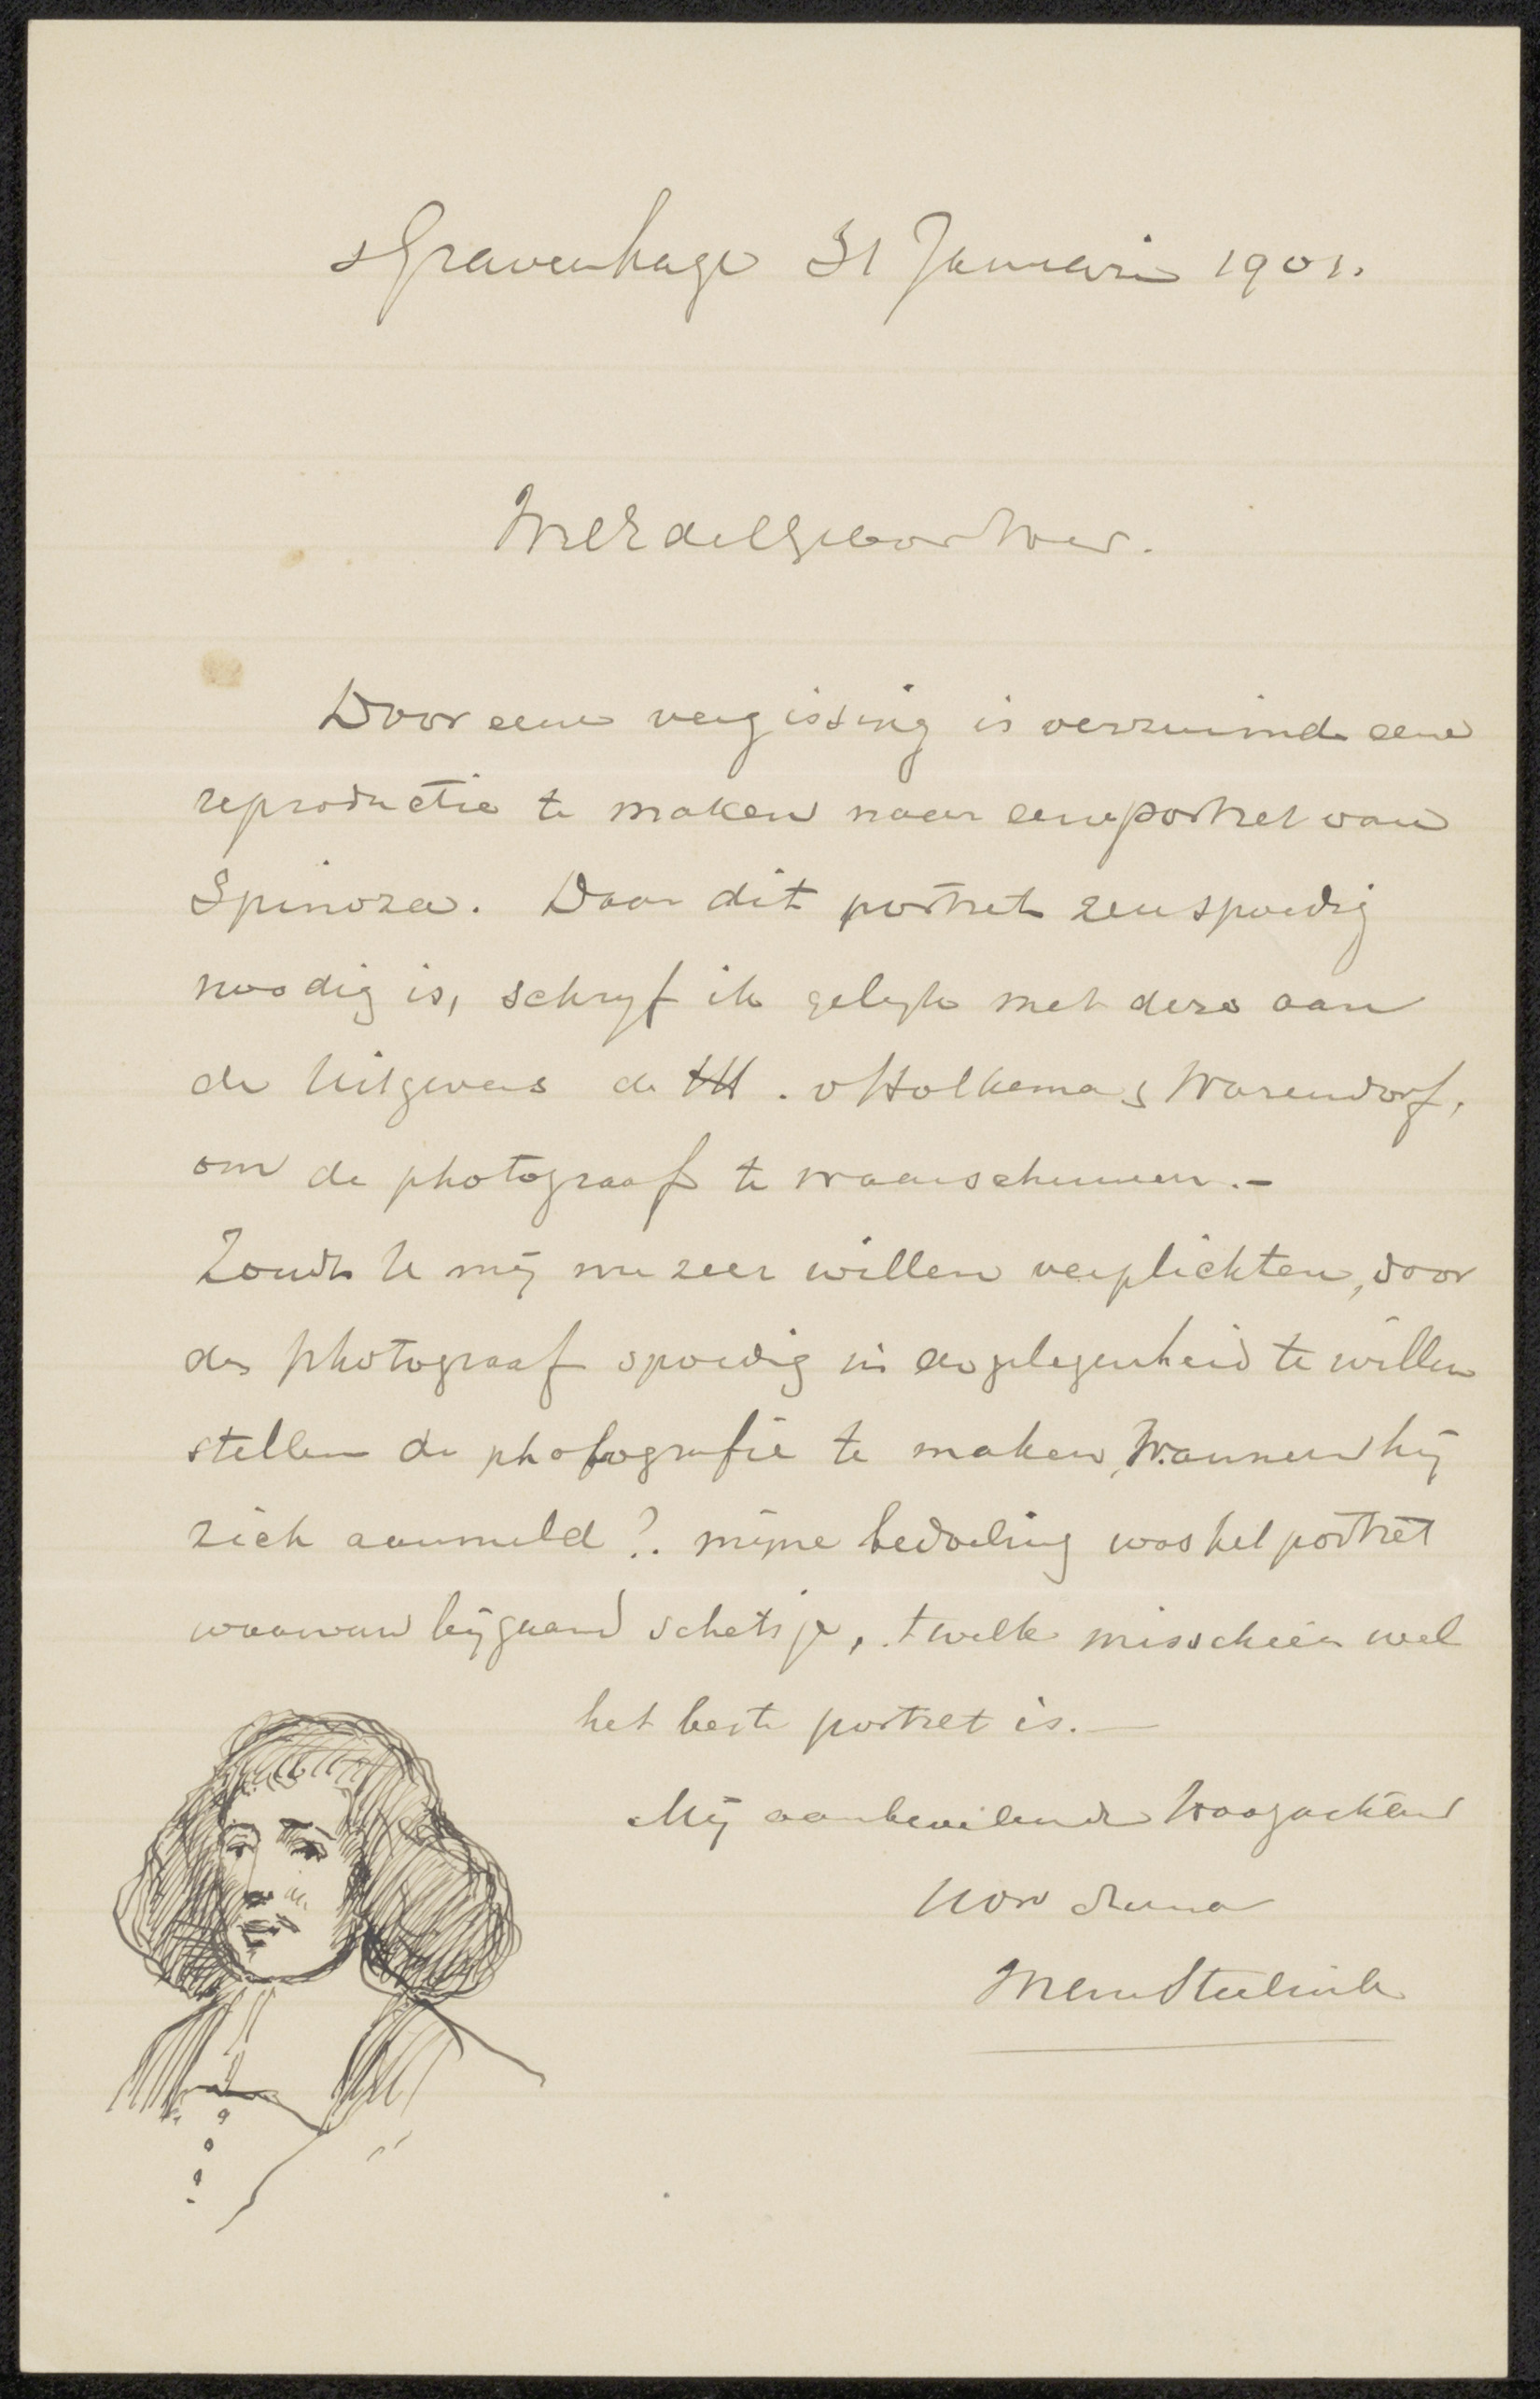 sGravenhage 31 Januari 1901.
WelEdelGeboren Heer.
Door eene vergissing is verzuimd eene
reproductie te maken naar een portret van
Spinoza. Daar dit portret zeer spoedig
noodig is, schryf ik gelyk met deze aan
de Uitgevers de HH. v Holkema & Warendorf,
om de photograaf te waarschuwen.-
Zoudt U mij nu zeer willen verplichten, door
de photograaf spoedig in de gelegenheid te willen
stellen de photografie te maken, wanneer hij
zich aanmeld? mijne bedoeling was het portret
waarvan bijgaand schetsje, t welk misschien wel
het beste portret is.—
Mij aanbevelende Hoogachtend
Uw
Willem Steelink